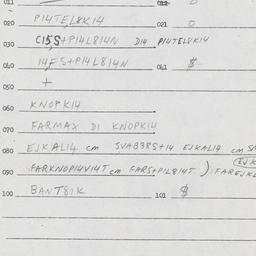 011 012 0
020 PI4TEL8KI4 021 0
030 CI5,S+PI4L8I4N DI4 PI4TEL8KI4
040 I4FS+PI4L8I4N 041 $
050 +
060 KNOPKI4
070 FARMAX DI KNOPKI4
080 EJKALI4 cm SVAB3RS+I4 EJKALI4 cm
090 FARKNOPI4VI4T cm FARS+PIL8I4T )
100 BANT8IK 101 $